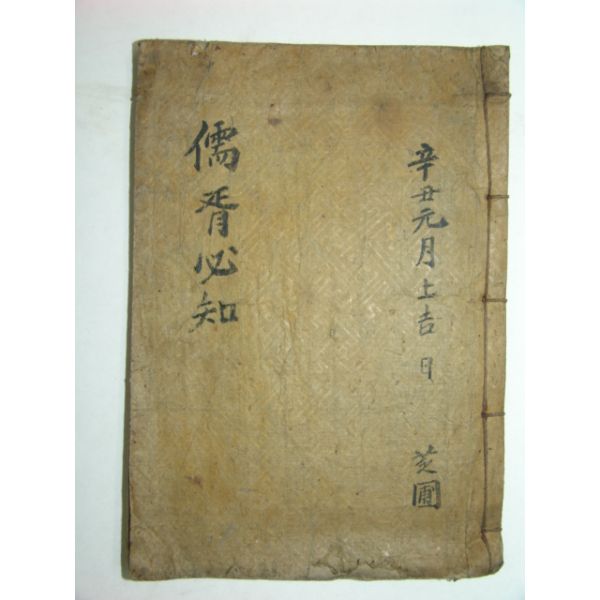 辛丑元月上吉日
芝圃
儒胥必知